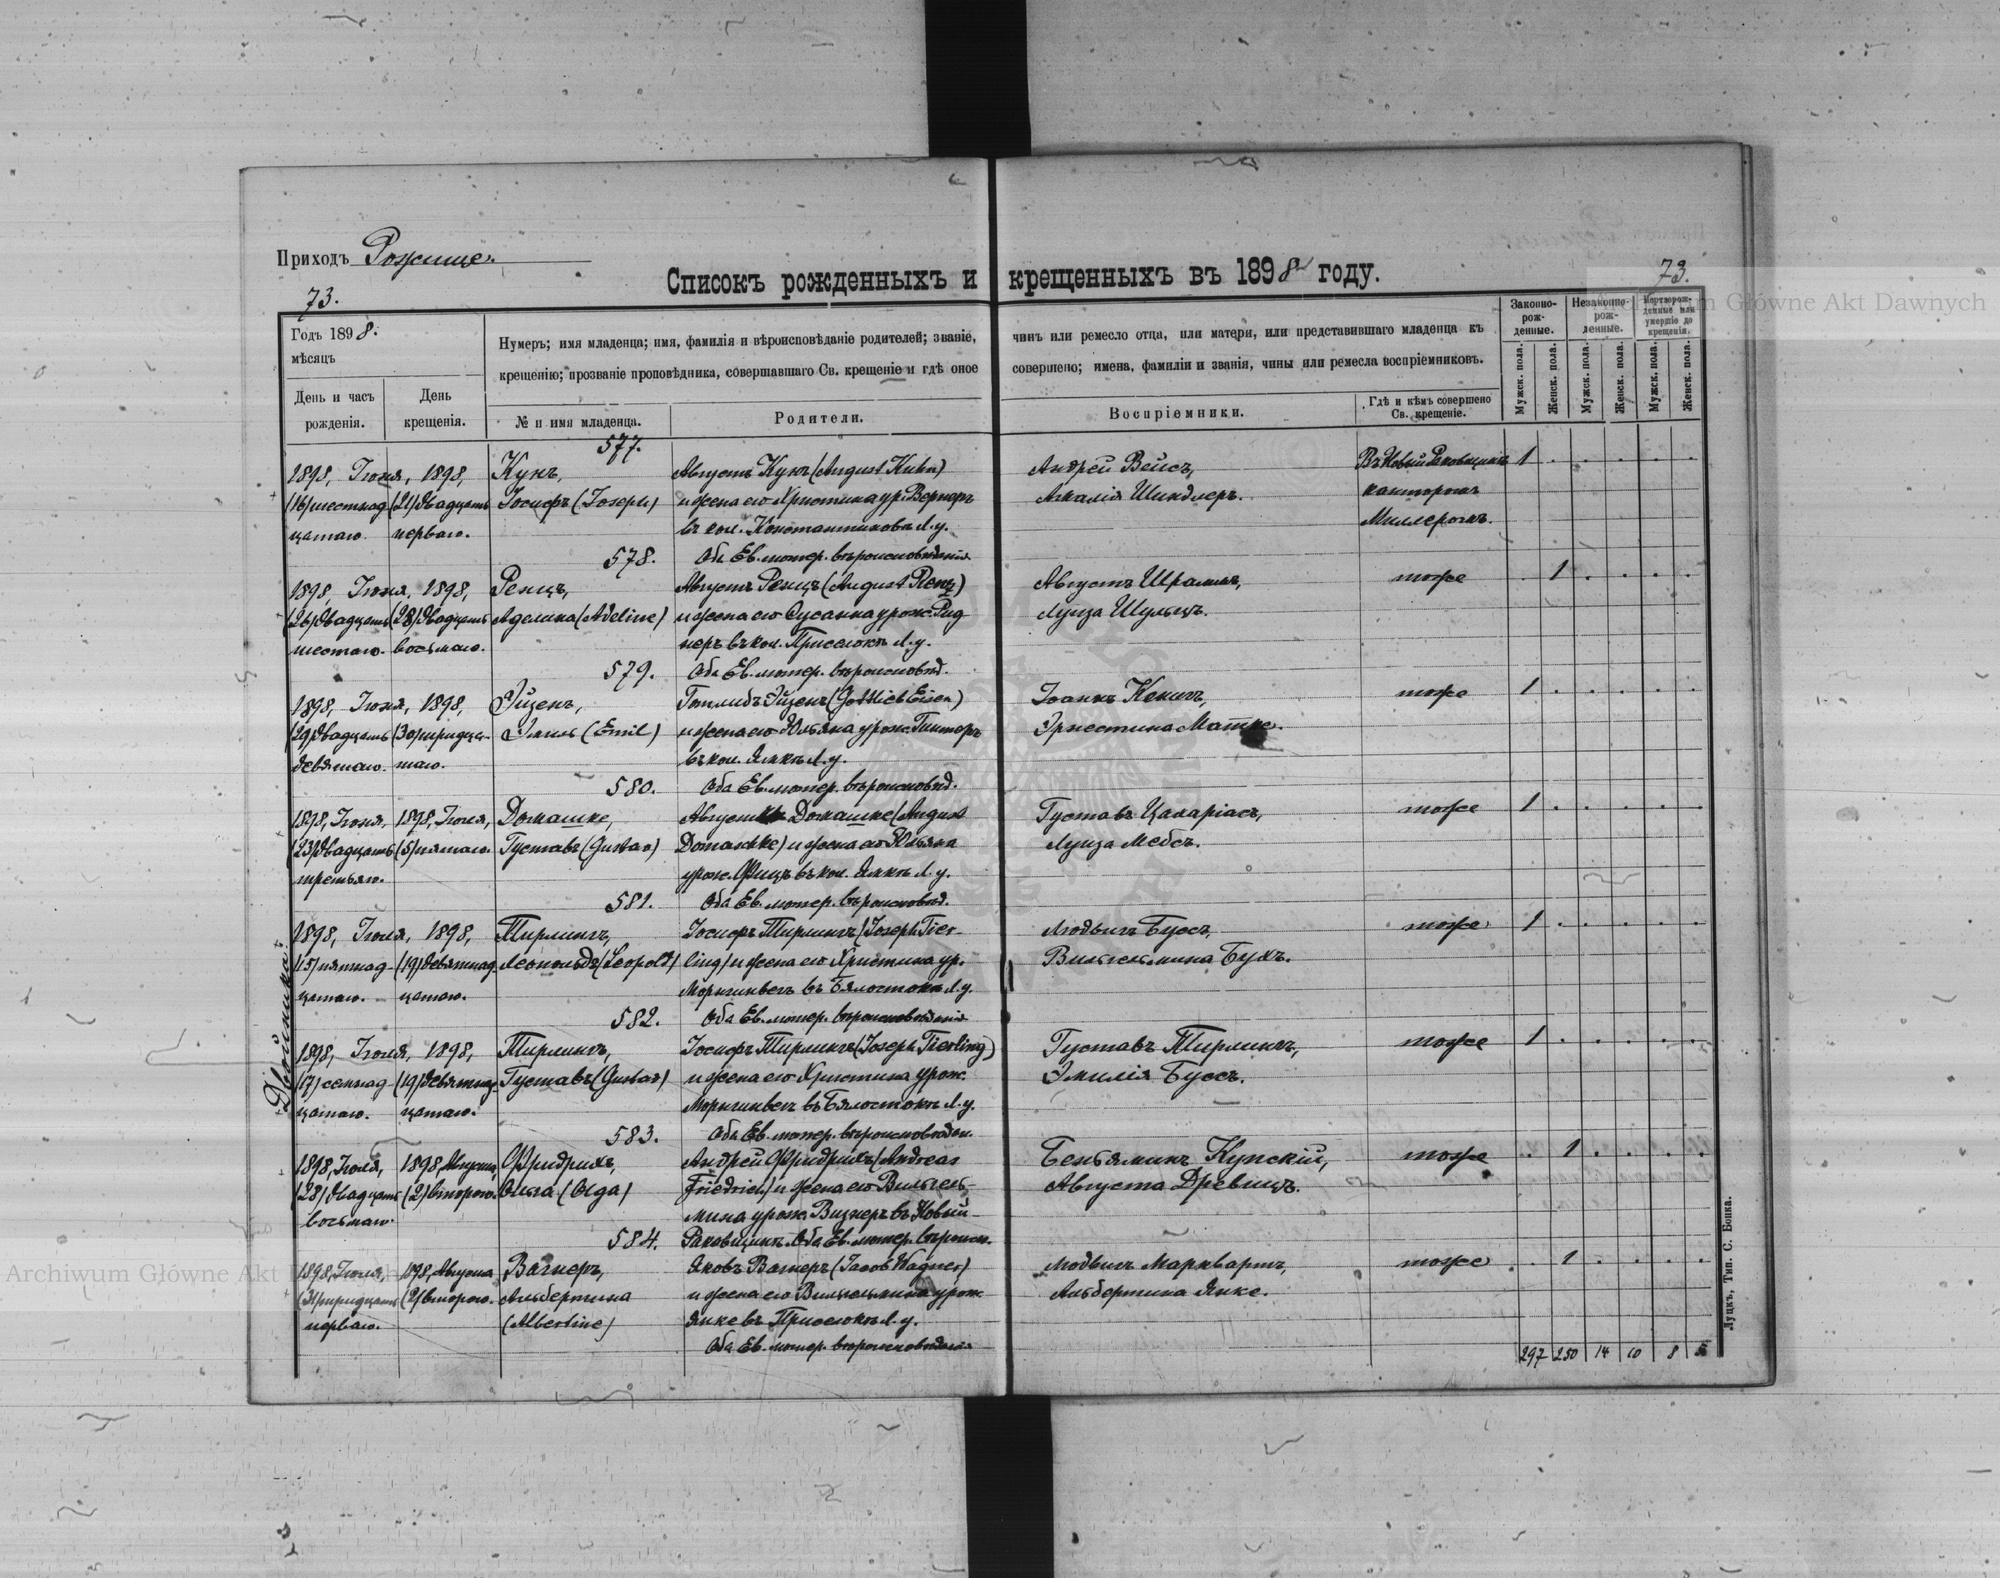 Приходъ Рожище.
73.
73.
Списокъ рожденныхъ и крещенныхъ въ 1898 году.
Archiwum Główne Akt Dawnych
Годъ 1898.
мѣсяцъ
День и часъ рожденія.
День крещенія.
Нумеръ; имя младенца; имя, фамилія и вѣроисповѣданіе родителей; званіе,
крещенію; прозваніе проповѣдника, совершавшаго Св. крещеніе и гдѣ оное
№ и имя младенца.
Родители.
чинъ или ремесло отца, или матери, или представившаго младенца къ
совершено; имена, фамиліи и званія, чины или ремесла воспріемниковъ.
Воспріемники.
Гдѣ и кѣмъ совершено
Св. крещеніе.
Законно-
рож-
денные.
Незаконно-
рож-
денные.
Мертворож-
денные или
умершіе до
крещенія.
Мужск. пола.
Женск. пола.
Мужск. пола.
Женск. пола.
Мужск. пола.
Женск. пола.
577.
1898, Іюня, 1898, Кунъ, Августъ Кунъ (August Kuhn) Андрей Вейсъ, 1
(16) шестнад (21) двадцать Іосифъ (Joseph) и жена его Христина ур. Вернеръ Амалія Шиндлеръ. канторомъ
цатаго. перваго. въ кол. Константиновкѣ Л. у. Миллеромъ.
578. Оба Ев. лютер. вѣроисповѣданія
1898, Іюня, 1898, Ренцъ, Августъ Ренцъ (August Renz) Августъ Шраммъ, тоже 1
(26) двадцать (28) двадцать Аделина (Adeline) и жена его Сусанна урож. Рид Луиза Шульцъ.
шестаго. восьмаго. неръ въ кол. Приселокъ Л. у.
579. Оба Ев. лютер. вѣроисповѣд.
1898, Іюня, 1898, Эйзенъ, Готлибъ Эйзенъ (Gottlieb Eisen) Іоаннъ Кенигъ, тоже 1
(29) двадцать (30) тридца- Эмиль (Emil) и жена его Юльяна урож. Гинтеръ Эрнестина Матке.
девятаго. таго. въ кол. Ямкѣ Л. у.
580. Оба Ев. лютер. вѣроисповѣд.
1898, Іюня, 1898, Іюля, Домашке, Августъ Домашке (August Густавъ Цахаріасъ, тоже 1
(23) двадцать (5) пятаго. Густавъ (Gustav) Domaschke) и жена его Юльяна Луиза Мебсъ.
третьяго. урож. Фицъ въ кол. Ямкѣ Л. у.
581. Оба Ев. лютер. вѣроисповѣд.
Двойники
1898, Іюля, 1898, Тирлингъ, Іосифъ Тирлингъ (Joseph Tier- Людвигъ Буссъ, тоже 1
(15) пятнад (19) девятнад Леопольдъ (Leopold) ling) и жена его Христина ур. Вильгельмина Бухъ.
цатаго. цатаго. въ Бялостокѣ Л. у.
582. Оба Ев. лютер. вѣроисповѣданія
1898, Іюля, 1898, Тирлингъ, Іосифъ Тирлингъ (Joseph Tierling) Густавъ Тирлингъ, тоже 1
(17) семнад (19) девятнад Густавъ (Gustav) и жена его Христина урож. Эмилія Буссъ.
цатаго. цатаго. въ Бялостокѣ Л. у.
583. Оба Ев. лютер. вѣроисповѣдан.
1898, Іюля, 1898, Августа, Фридрихъ, Андрей Фридрихъ (Andreas Беньяминъ Купскій, тоже 1
(28) двадцать (2) втораго. Ольга (Olga) Friedrich) и жена его Вильгель- Августа Древицъ.
восьмаго. мина урож. Визнеръ въ Новый-
584. Раковщинѣ. Оба Ев. лютер. вѣроисп.
1898, Іюля, 1898, Августа Вагнеръ, Яковъ Вагнеръ (Jacob Wagner) Людвигъ Марквартъ, тоже 1
(31) тридцать (2) втораго. Альбертина и жена его Вильгельмина урож. Альбертина Янке.
перваго. (Albertine) Янке въ Приселокѣ Л. у.
Оба Ев. лютер. вѣроисповѣданія
297 250 14 10 8 5
Луцкъ, Тип. С. Бонка.
Archiwum Główne Akt D